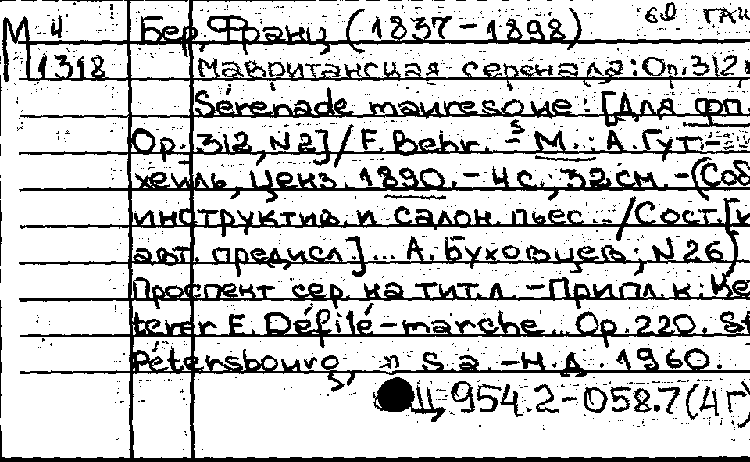 М 4
1318
Бер, Франц (1837-1898)
Мавританская серенада: Ор.312,
Sérenade mauresque: [Для фп.
Op. 312, N2] / F. Behr. - М.: А. Гут-
хейль, Ценз. 1890. - 4 с.; 32 см. - (Соб
инструктив. и салон. пьес... / Сост. [и
авт. предисл.]... А. Буховцев; N 26)
Проспект сер. на тит. л. - Припл. к: Ke
terer E. Défilé-marche... Op. 220. St
Pétersbourg, s.a. - Н.Д. 1960.
Ц 954.2-058.7(4Г)